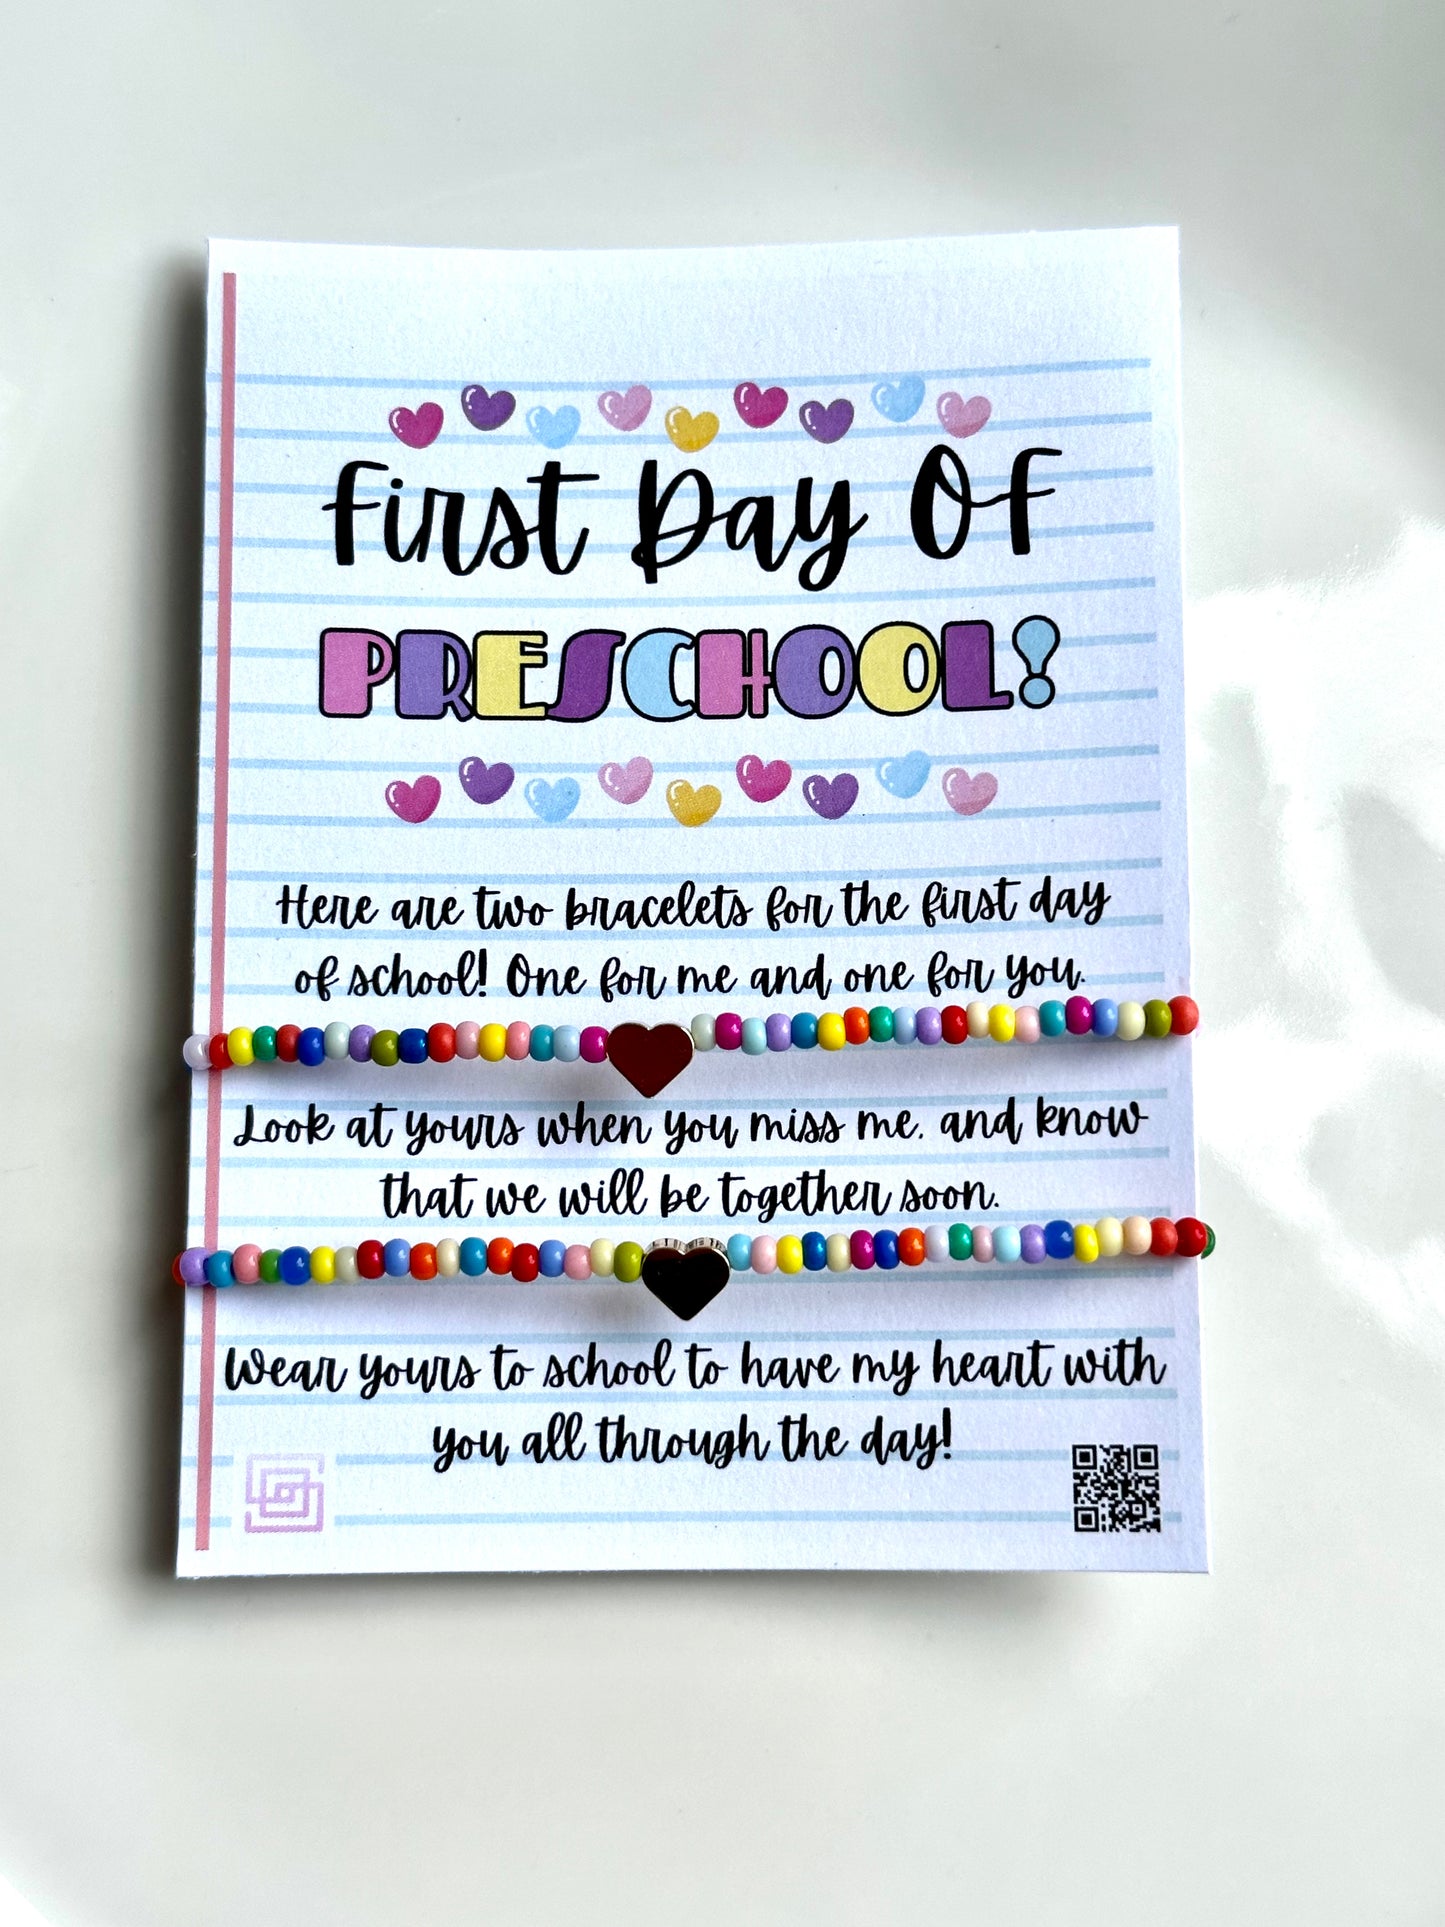 First Day Of
PRESCHOOL!
Here are two bracelets for the first day
of school! One for me and one for you.
Look at yours when you miss me, and know
that we will be together soon.
Wear yours to school to have my heart with
you all through the day!